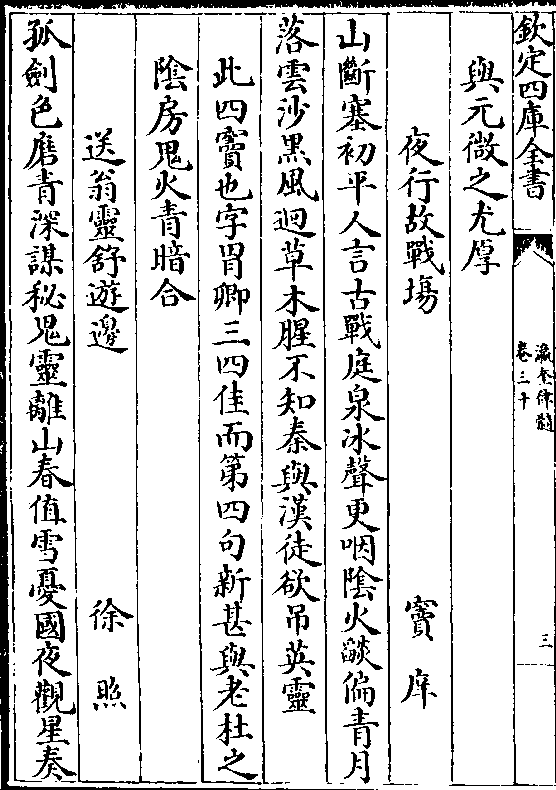 欽定四庫全書
瀛奎律髓
卷三十
三
與元微之尤厚
夜行故戰塲 竇庠
山斷塞初平人言古戰庭泉冰聲更咽陰火燄偏青月
落雲沙黑風迴草木腥不知秦與漢徒欲吊英靈
此四竇也字胄卿三四佳而第四句新甚與老杜之
陰房鬼火青暗合
送翁靈舒遊邊 徐照
孤劍色磨青深謀秘鬼靈離山春值雪憂國夜觀星奏